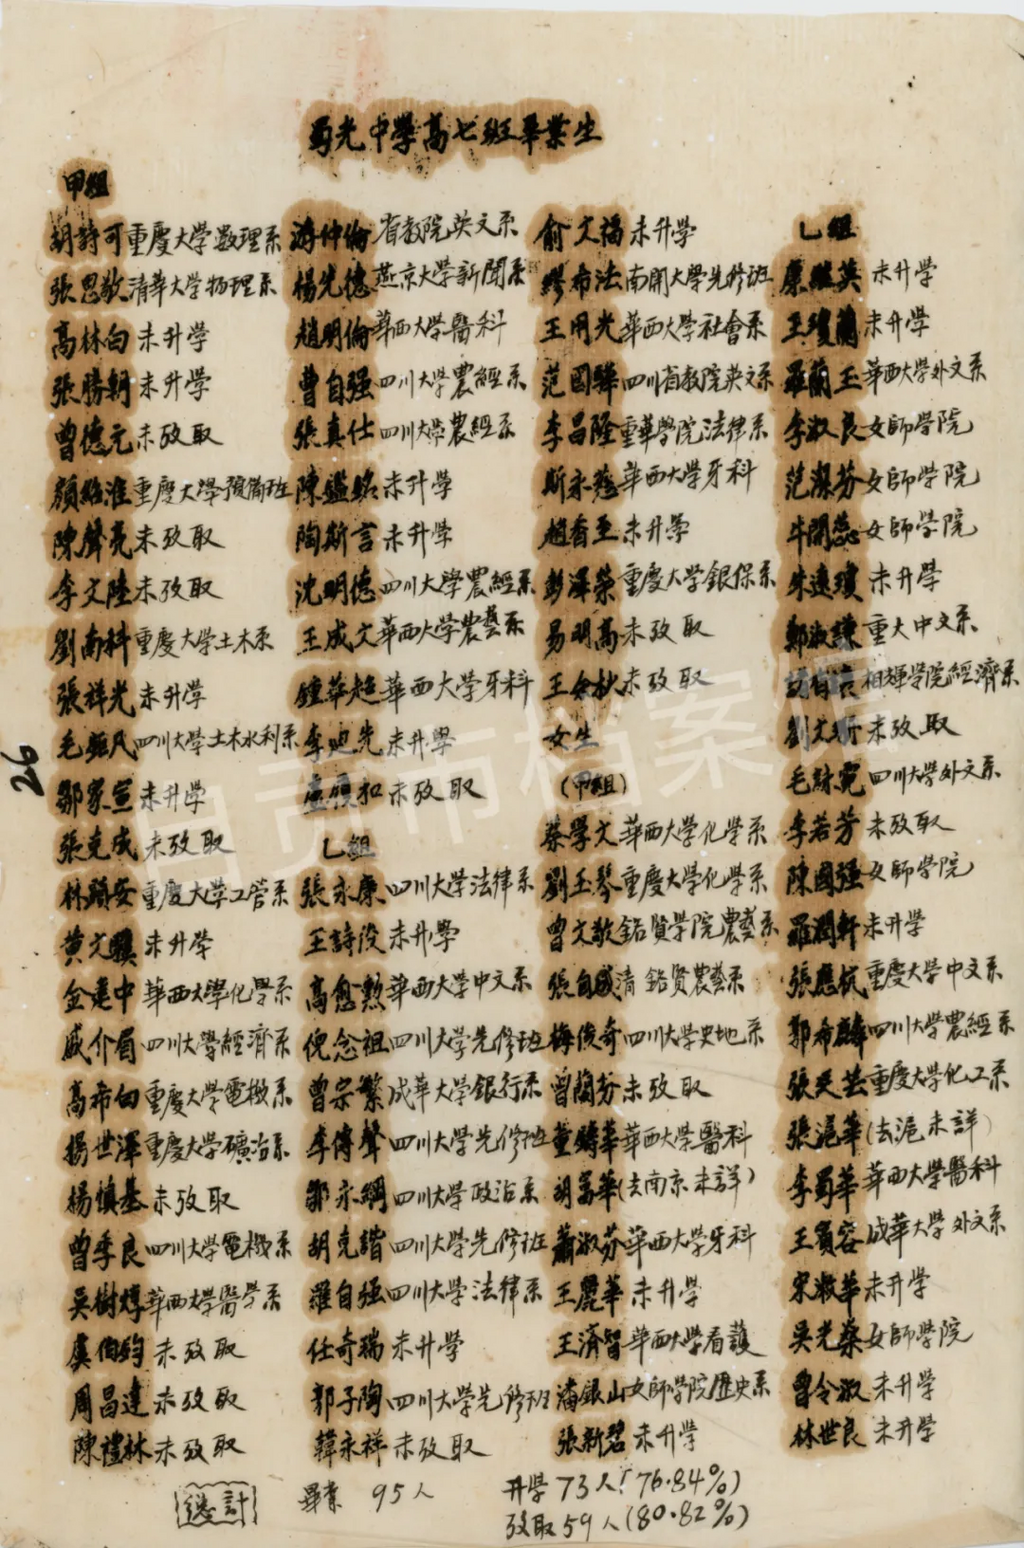 蜀光中學高七班畢業生
甲組
胡詩可 重慶大学数理系
張思敬 清華大学物理系
高林向 未升学
張勝朝 未升学
曾德元 未攷取
顏紹淮 重慶大學預備班
陳聲亮 未攷取
李文陸 未攷取
劉南科 重慶大学土木系
張祥光 未升学
毛鉅凡 四川大学土木水利系
鄒家宣 未升学
張克成 未攷取
林顯安 重慶大学工管系
黄文驥 未升学
金建中 華西大學化學系
戚介眉 四川大學經濟系
高希向 重慶大学電機系
揚世澤 重慶大学礦冶系
楊慎基 未攷取
曾季良 四川大学電機系
吳樹焞 華西大學醫學系
虞伯鈞 未攷取
周昌達 未攷取
陳禮林 未攷取
游仲倫 省教院英文系
楊光德 燕京大学新聞系
趙明倫 華西大学醫科
曹自强 四川大学農經系
張真仕 四川大学農經系
陳鑑銘 未升學
陶斯言 未升學
沈明德 四川大學農經系
王成文 華西大学農藝系
鍾華超 華西大学牙科
李迪先 未升學
盧頤和 未攷取
乚組
張永康 四川大学法律系
王詩浚 未升學
高愈勲 華西大学中文系
倪念祖 四川大学先修班
曾宗繁 成華大学銀行系
李傳聲 四川大学先修班
鄒永綱 四川大学政治系
胡克諧 四川大学先修班
羅自强 四川大学法律系
任奇瑞 未升學
郭子陶 四川大学先修班
韓永祥 未攷取
俞文福 未升学
繆希法 南開大学先修班
王用光 華西大学社會系
范國驊 四川省教院英文系
李昌隆 重華學院法律系
斯永慈 華西大学牙科
趙香至 未升學
彭澤榮 重慶大学銀保系
易明高 未攷取
王余杕 未攷取
女生
(甲組)
蔡學文 華西大学化學系
劉玉琴 重慶大学化學系
曾文敏 銘賢学院農藝系
張自威 清 銘賢農藝系
梅俊奇 四川大学史地系
曾蘭芬 未攷取
董騁華 華西大學醫科
胡富華 (去南京未詳)
蕭淑芬 華西大学牙科
王麗華 未升學
王濟智 華西大学看護
潘銀山 女師学院歷史系
張新碧 未升学
乚組
康繼英 未升学
王瓊蘭 未升学
羅蘭玉 華西大学外文系
李淑良 女師學院
范潔芬 女師学院
牛開蕊 女師学院
朱遠瓊 未升学
鄭淑謙 重大中文系
相輝學院經濟系
劉文斯 未攷取
毛詠霓 四川大学外文系
李若芳 未攷取
陳國强 女師学院
羅潤軒 未升学
張應梡 重慶大学中文系
郭希麟 四川大学農經系
張昊芸 重慶大学化工系
張滬華 (去滬未詳)
李蜀華 華西大学醫科
王賓容 成華大学外文系
宋淑華 未升学
吳光燊 女師学院
曾令淑 未升学
林世良 未升学
26
總計
畢業 95人
升學73人(76.84%)
攷取59人(80.82%)
自贡市档案馆